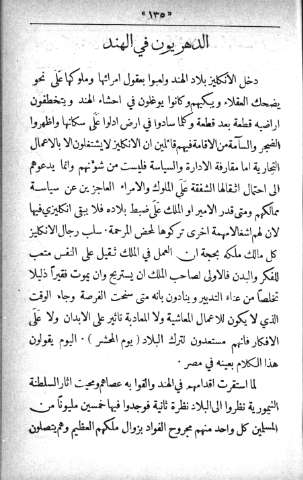 «١٣٥»
الدهريون في الهند
دخل الانكليز بلاد الهند ولعبوا بعقول امرائها وملوكها على نحو
يضحك العقلاء ويبكيهم وكانوا يوغلون في احشاء الهند ويتخطفون
اراضيه قطعة بعد قطعة وكلما سادوا في ارض ادلوا على سكانها واظهروا
الضجر والسآمة من الاقامة فيهم قائلين ان الانكليز لا يشتغلون الا بالاعمال
التجارية اما مقارفة الادارة والسياسة فليست من شؤنهم وانما يدعوهم
الى احتمال اثقالها الشفقة على الملوك والامراء العاجزين عن سياسة
ممالكهم ومتى قدر الامير او الملك على ضبط بلاده فلا يبقى انكليزي فيها
لان لهم اشغالا مهمة اخرى تركوها لمحض المرحمة . سلب رجال الانكليز
كل مالك ملكه بحجة ان العمل في الملك ثقيل على النفس متعب
للفكر والبدن فالاولى لصاحب الملك ان يستريح وان يموت فقيراً ذليلا
تخلصا من عناء التدبير وينادون بأنه متى سنحت الفرصة وجاء الوقت
الذي لا يكون للاعمال المعاشية ولا المعادية تأثير على الابدان ولا على
الافكار فانهم مستعدون لترك البلاد ( يوم المحشر ) . اليوم يقولون
هذا الكلام بعينه في مصر .
لما استقرت اقدامهم في الهند والقوا به عصاهم ومحيت اثار السلطنة
التيمورية نظروا الى البلاد نظرة ثانية فوجدوا فيها خمسين مليونا من
المسلمين كل واحد منهم مجروح الفؤاد بزوال ملكهم العظيم وهم يتصلون